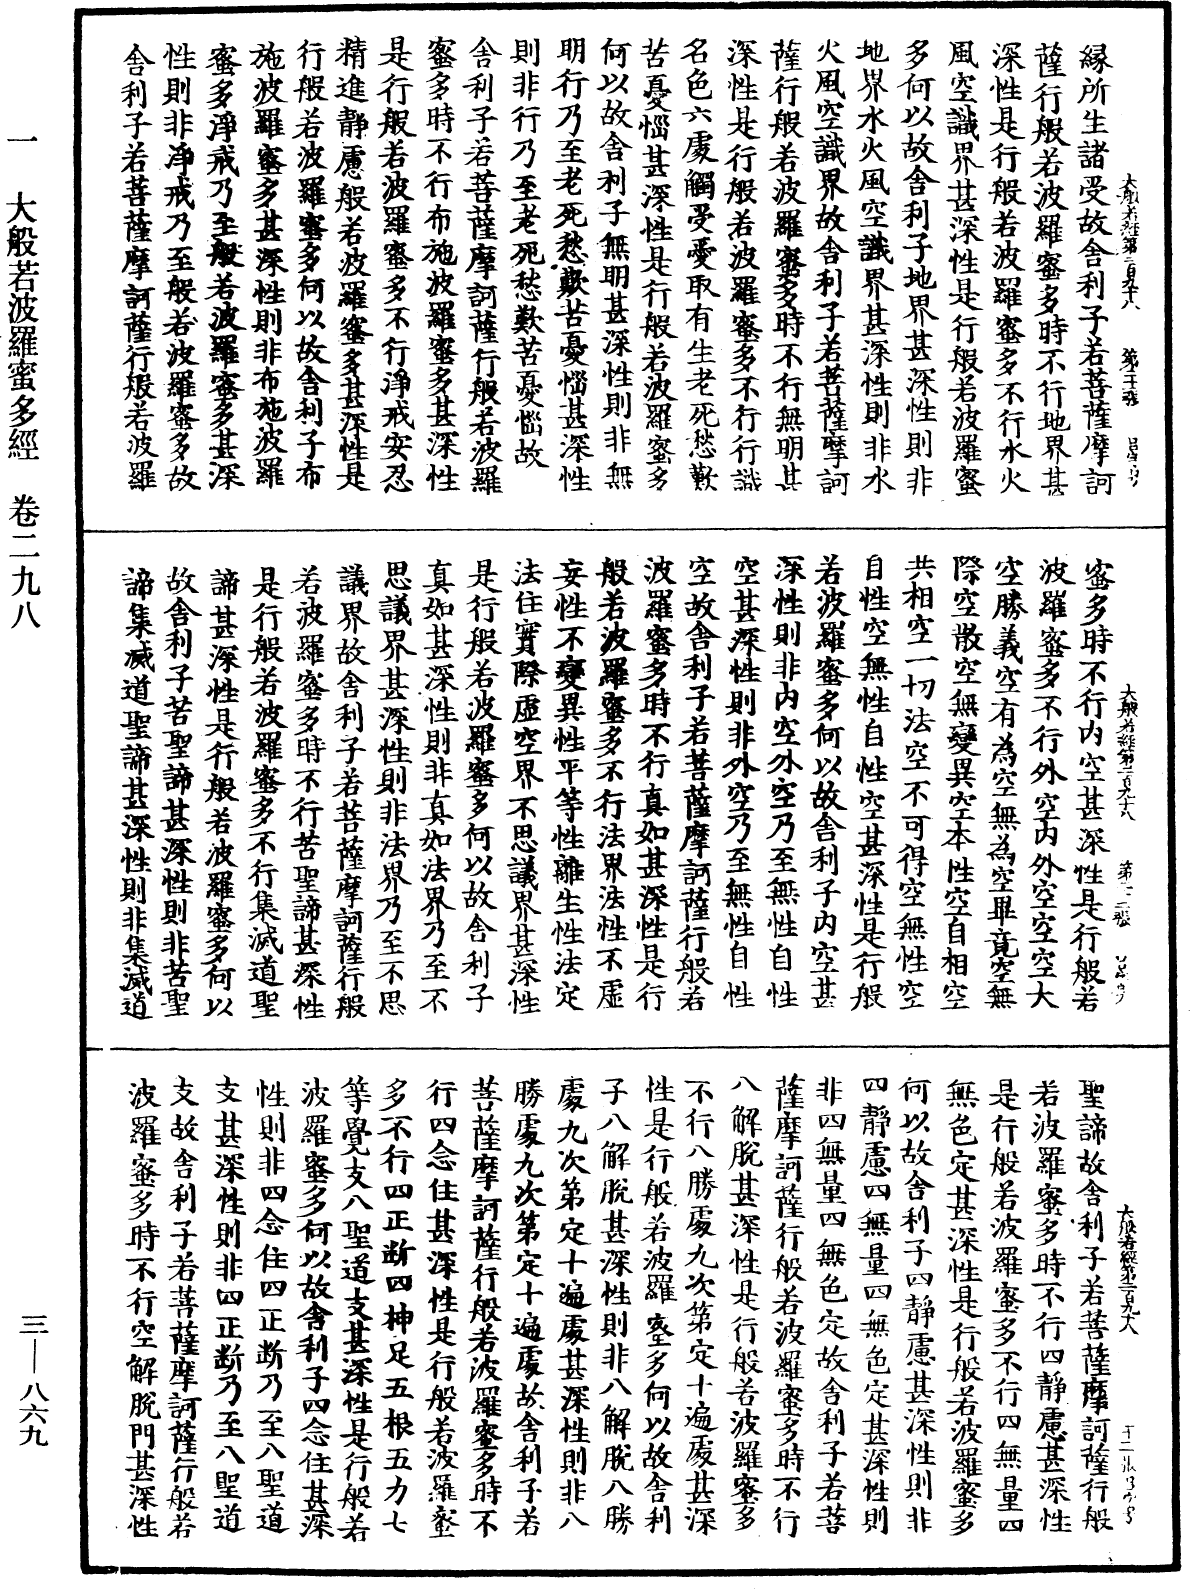 緣所生諸受故舍利子若菩薩摩訶
薩行般若波羅蜜多時不行地界甚
深性是行般若波羅蜜多不行水火
風空識界甚深性是行般若波羅蜜
多何以故舍利子地界甚深性則非
地界水火風空識界甚深性則非水
火風空識界故舍利子若菩薩摩訶
薩行般若波羅蜜多時不行無明甚
深性是行般若波羅蜜多不行行識
名色六處觸受愛取有生老死愁歎
苦憂惱甚深性是行般若波羅蜜多
何以故舍利子無明甚深性則非無
明行乃至老死愁歎苦憂惱甚深性
則非行乃至老死愁歎苦憂惱故
舍利子若菩薩摩訶薩行般若波羅
蜜多時不行布施波羅蜜多甚深性
是行般若波羅蜜多不行淨戒安忍
精進靜慮般若波羅蜜多甚深性是
行般若波羅蜜多何以故舍利子布
施波羅蜜多甚深性則非布施波羅
蜜多淨戒乃至般若波羅蜜多甚深
性則非淨戒乃至般若波羅蜜多故
舍利子若菩薩摩訶薩行般若波羅
大般若經第二百九十八
蜜多時不行內空甚深性是行般若
波羅蜜多不行外空內外空空空大
空勝義空有為空無為空畢竟空無
際空散空無變異空本性空自相空
共相空一切法空不可得空無性空
自性空無性自性空甚深性是行般
若波羅蜜多何以故舍利子內空甚
深性則非內空外空乃至無性自性
空甚深性則非外空乃至無性自性
空故舍利子若菩薩摩訶薩行般若
波羅蜜多時不行真如甚深性是行
般若波羅蜜多不行法界法性不虛
妄性不變異性平等性離生性法定
法住實際虛空界不思議界甚深性
是行般若波羅蜜多何以故舍利子
真如甚深性則非真如法界乃至不
思議界甚深性則非法界乃至不思
議界故舍利子若菩薩摩訶薩行般
若波羅蜜多時不行苦聖諦甚深性
是行般若波羅蜜多不行集滅道聖
諦甚深性是行般若波羅蜜多何以
故舍利子苦聖諦甚深性則非苦聖
諦集滅道聖諦甚深性則非集滅道
大般若經第二百九十八
聖諦故舍利子若菩薩摩訶薩行般
若波羅蜜多時不行四靜慮甚深性
是行般若波羅蜜多不行四無量四
無色定甚深性是行般若波羅蜜多
何以故舍利子四靜慮甚深性則非
四靜慮四無量四無色定甚深性則
非四無量四無色定故舍利子若菩
薩摩訶薩行般若波羅蜜多時不行
八解脫甚深性是行般若波羅蜜多
不行八勝處九次第定十遍處甚深
性是行般若波羅蜜多何以故舍利
子八解脫甚深性則非八解脫八勝
處九次第定十遍處甚深性則非八
勝處九次第定十遍處故舍利子若
菩薩摩訶薩行般若波羅蜜多時不
行四念住甚深性是行般若波羅蜜
多不行四正斷四神足五根五力七
等覺支八聖道支甚深性是行般若
波羅蜜多何以故舍利子四念住甚深
性則非四念住四正斷乃至八聖道
支甚深性則非四正斷乃至八聖道
支故舍利子若菩薩摩訶薩行般若
波羅蜜多時不行空解脫門甚深性
大般若經第二百九十八
一　大般若波羅蜜多經　卷二九八
三—八六九